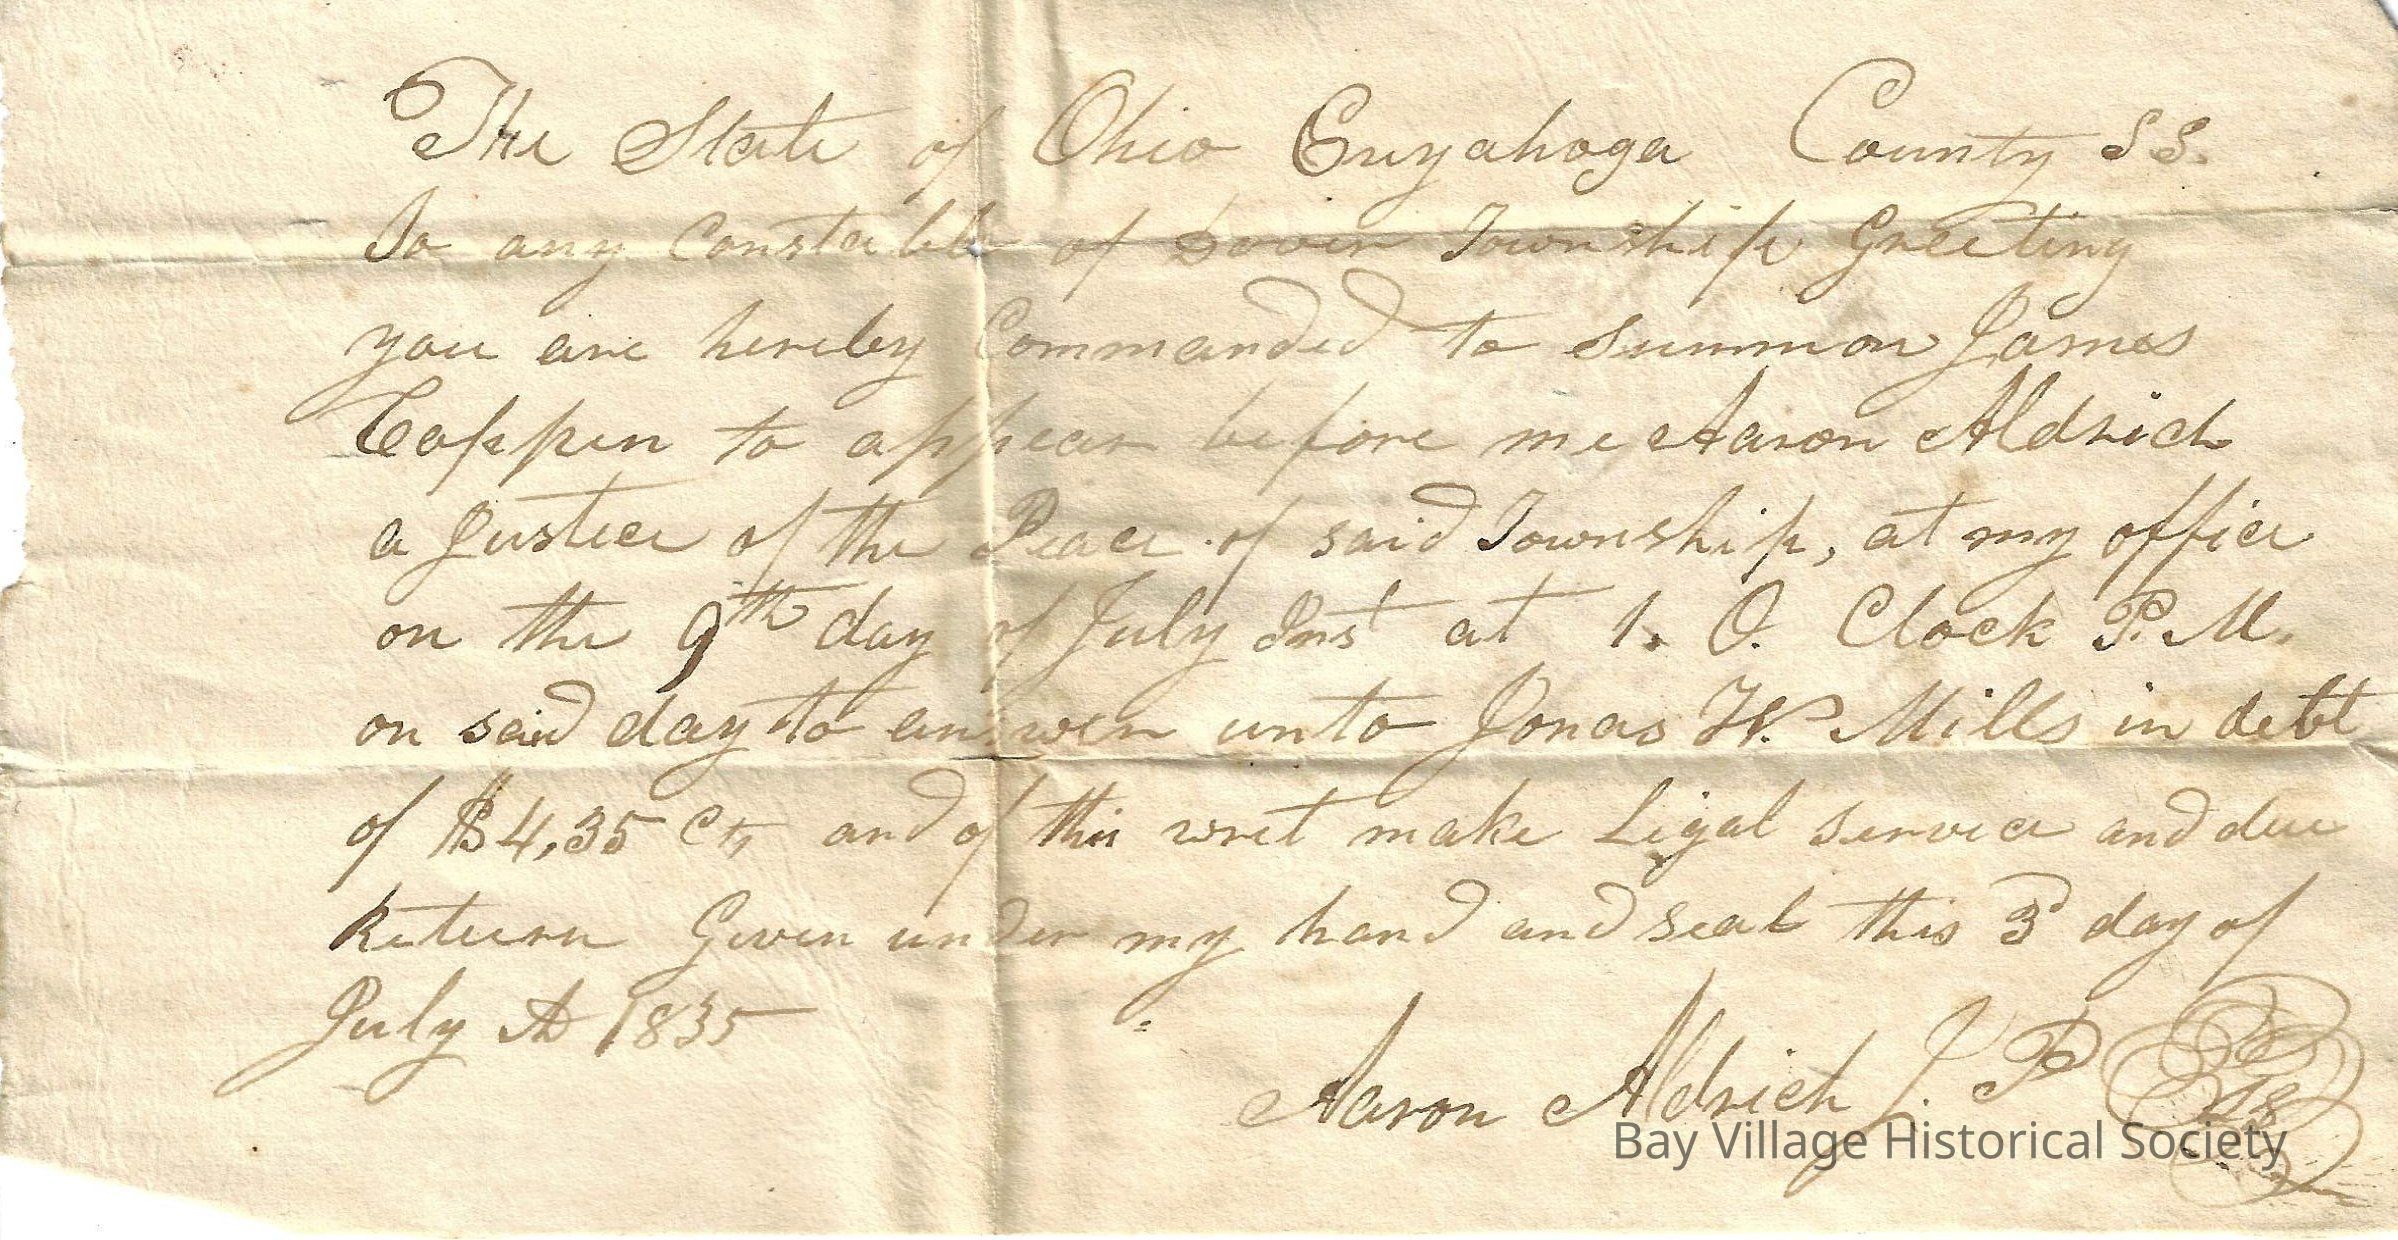 The State of Ohio Cuyahoga County SS.
To any Constable of Dover Township Greeting
you are hereby Commanded to Summon James
Coppen to appear before me Aaron Aldrich
a Justice of the Peace of said Township, at my office
on the 9th day of July Inst at 1. O. Clock P. M.
on said day to answer unto Jonas H. Mills in debt
of $4,35 cts and of this writ make Legal service and due
Return Given under my hand and seal this 3d day of
July AD 1835
Aaron Aldrich J. P.
Bay Village Historical Society